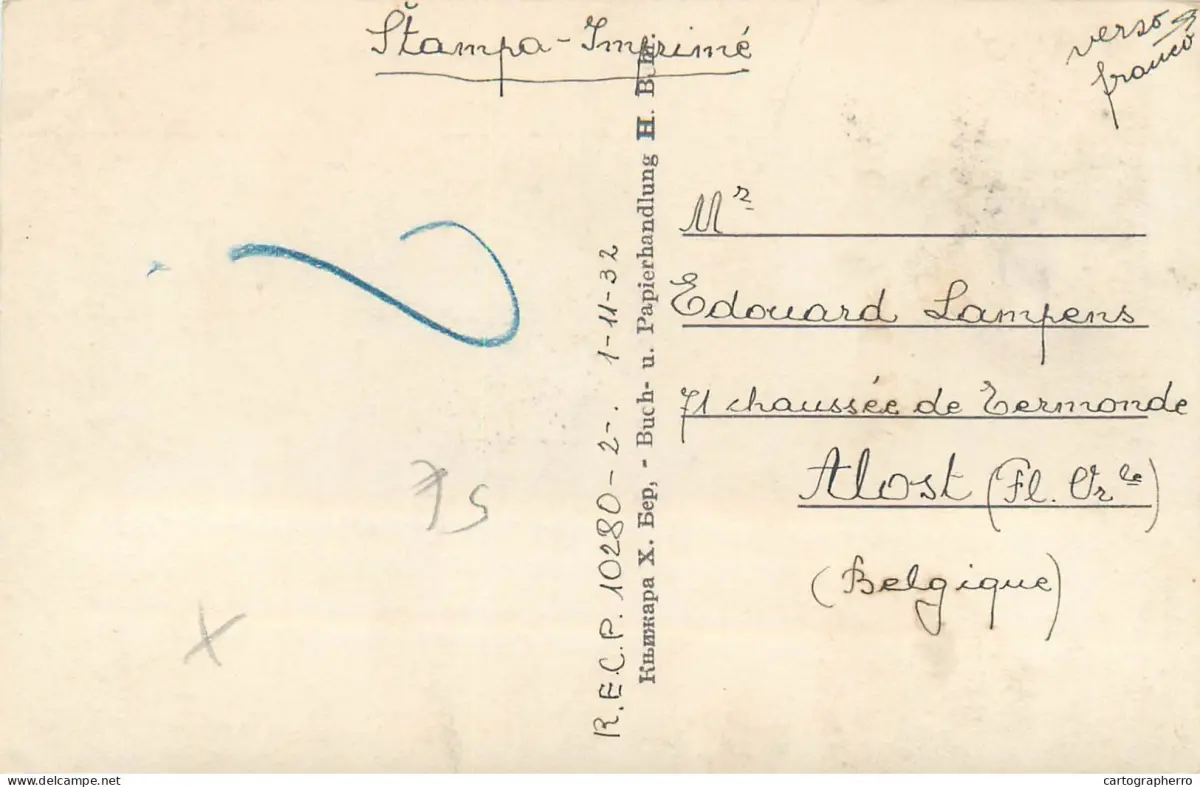 Štampa - Imprimé
verso
franco
R.E.C.P. 10280-2-. 1-11-32
Књижара Х. Бер, - Buch- u. Papierhandlung H.
Mr
Edouard Lampens
71 chaussée de Termonde
Alost (Fl. Orle)
(Belgique)
75
X
www.delcampe.net
cartographerro